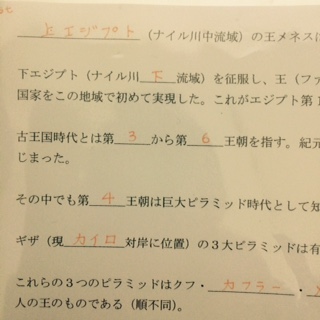 上エジプト（ナイル川中流域）の王メネスに
下エジプト（ナイル川下流域）を征服し、王（ファ
国家をこの地域で初めて実現した。これがエジプト第1
古王国時代とは第3から第6王朝を指す。紀元
じまった。
その中でも第4王朝は巨大ピラミッド時代として知
ギザ（現カイロ対岸に位置）の3大ピラミッドは有
これらの3つのピラミッドはクフ・カフラー・
人の王のものである（順不同）。